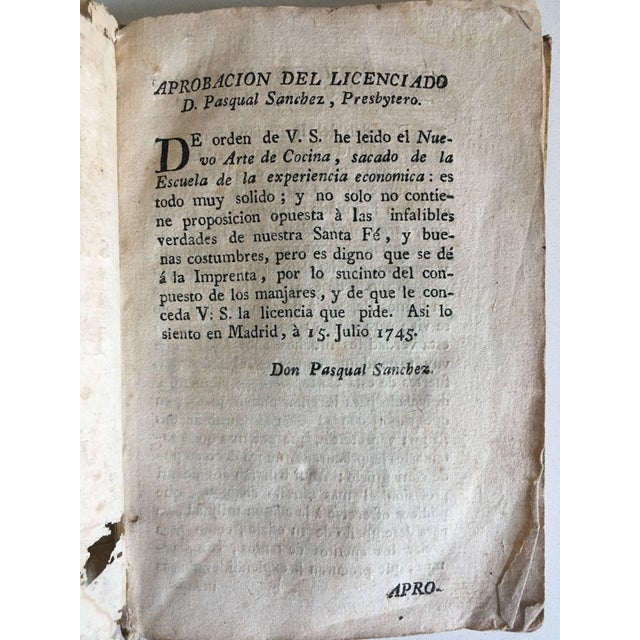 APROBACION DEL LICENCIADO
D. Pasqual Sanchez, Presbytero.
DE orden de V. S. he leido el Nue-
vo Arte de Cocina, sacado de la
Escuela de la experiencia economica: es
todo muy solido; y no solo no contie-
ne proposicion opuesta à las infalibles
verdades de nuestra Santa Fé, y bue-
nas costumbres, pero es digno que se dé
á la Imprenta, por lo sucinto del con-
puesto de los manjares, y de que le con-
ceda V. S. la licencia que pide. Asi lo
siento en Madrid, à 15. Julio 1745.
Don Pasqual Sanchez.
APRO-